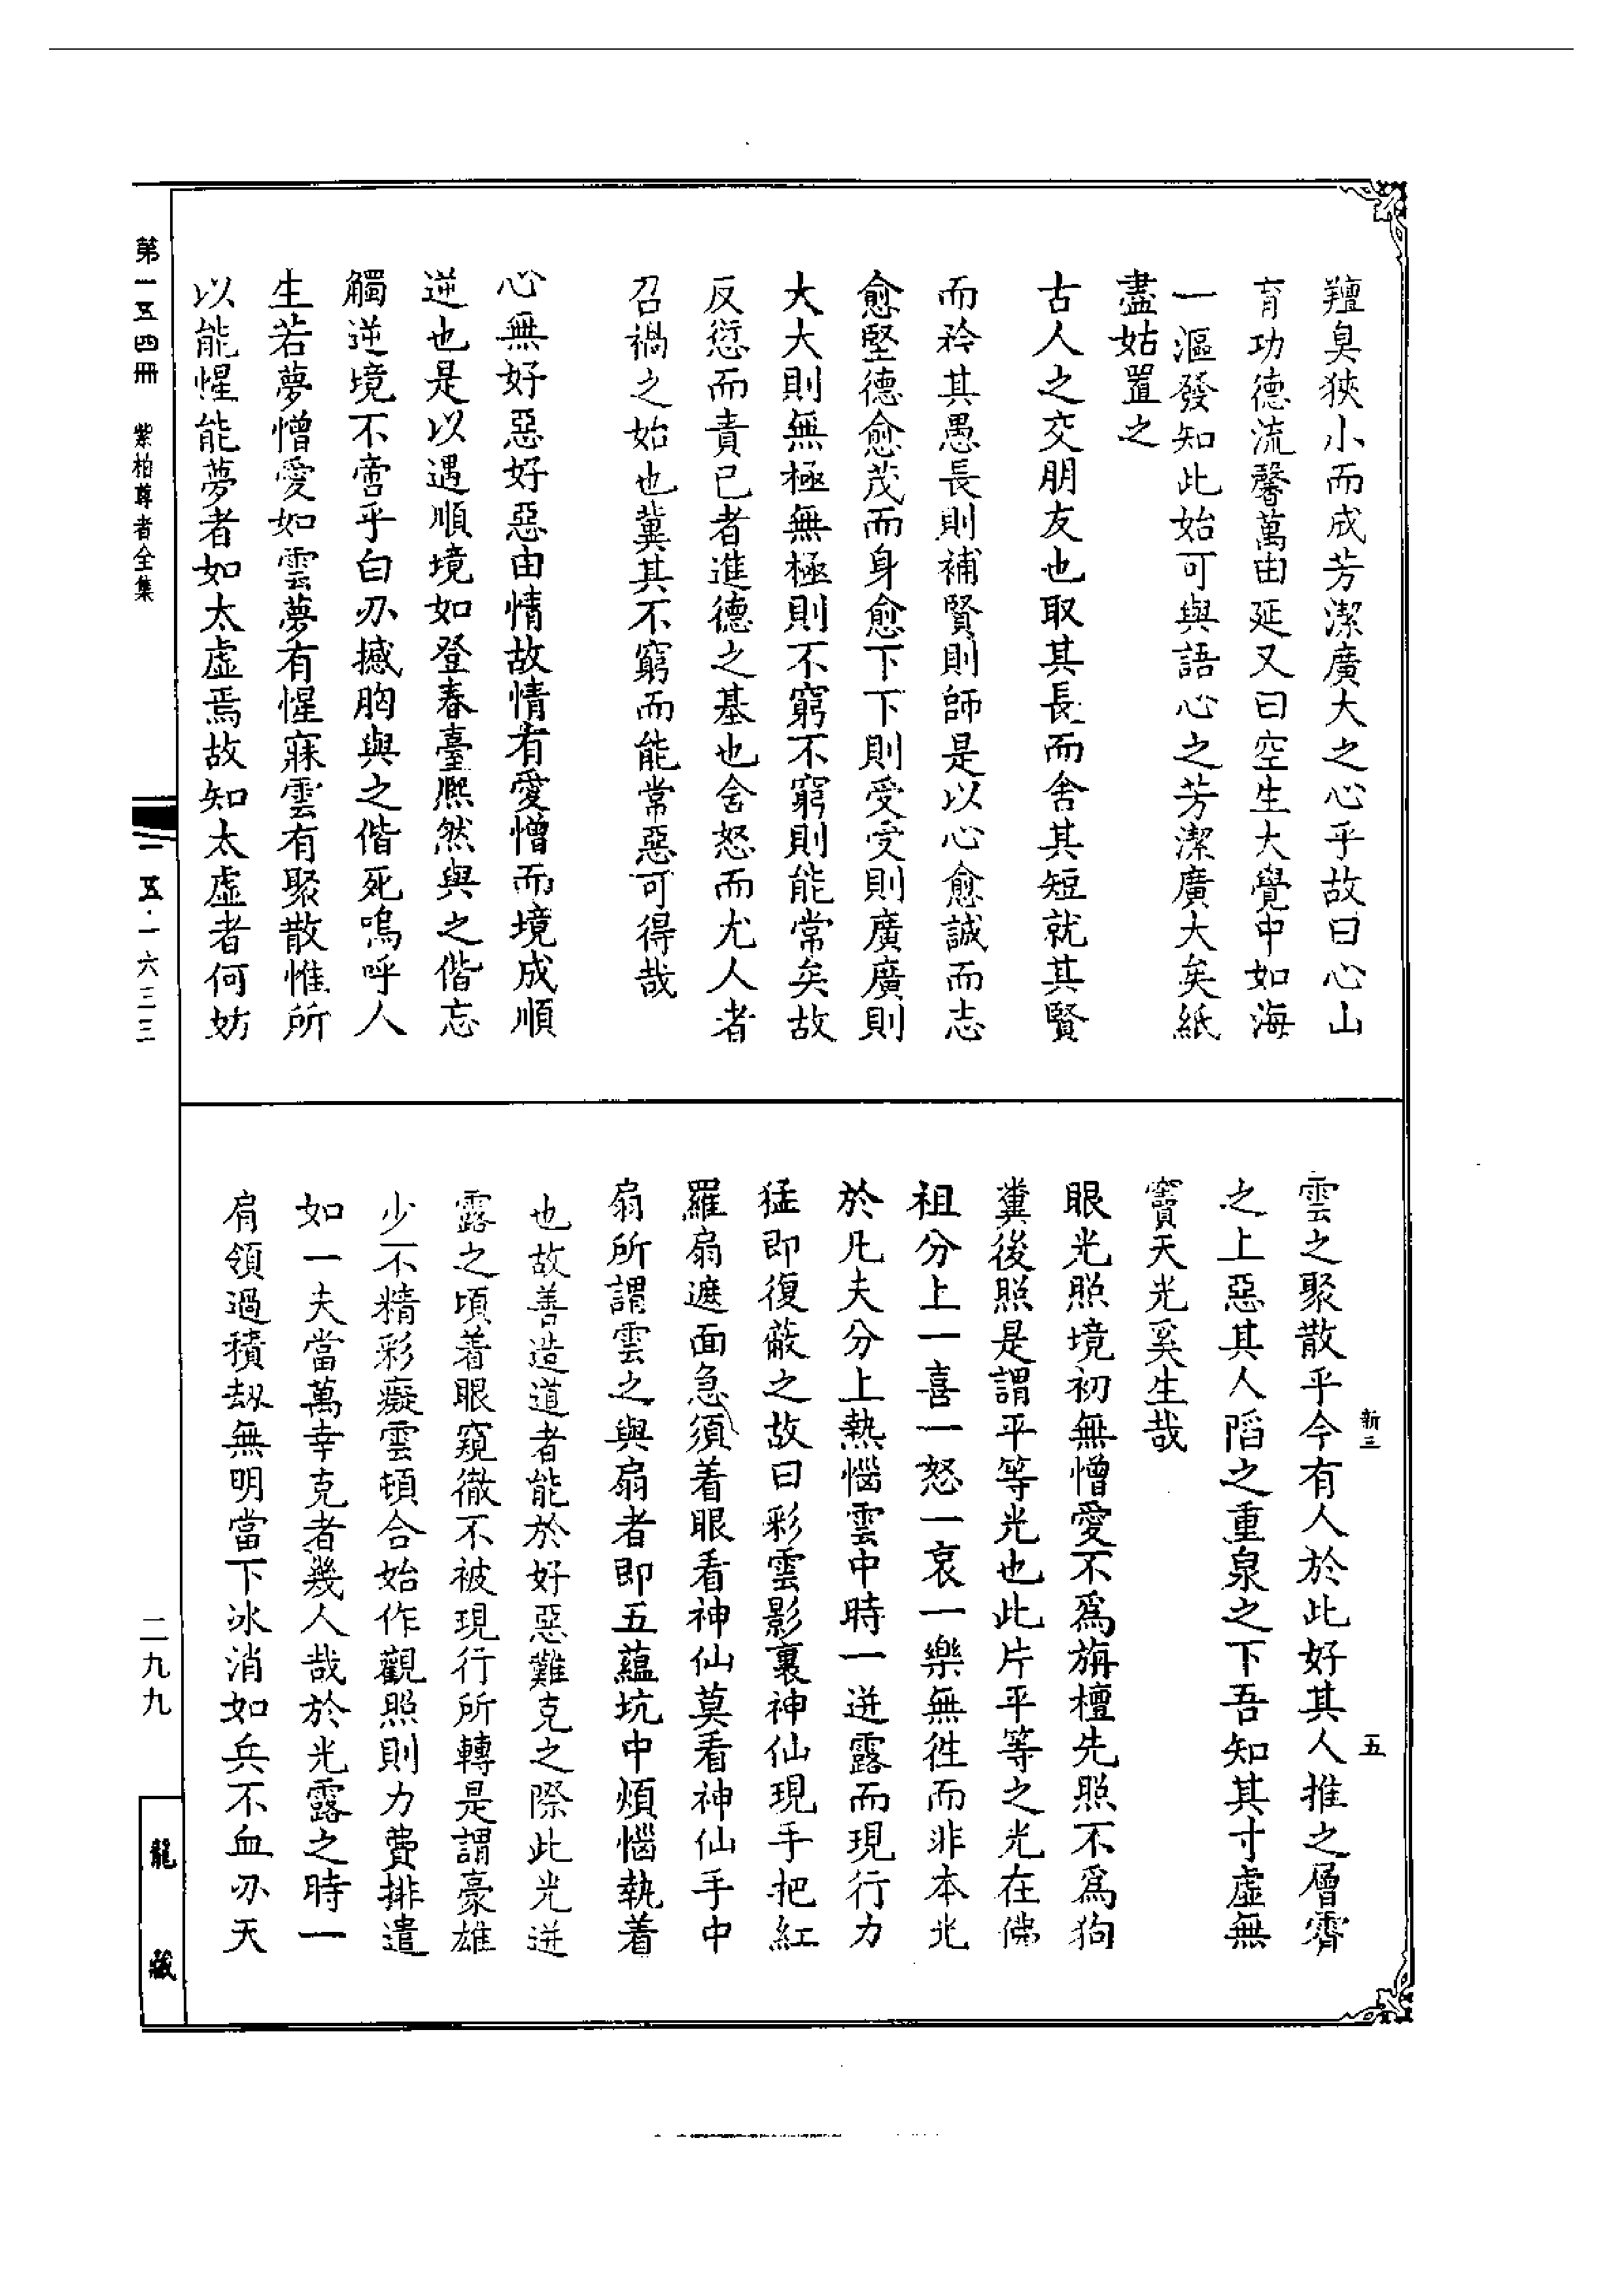 羶臭狹小而成芳潔廣大之心乎故曰心山
育功德流馨萬由延又曰空生大覺中如海
一漚發知此始可與語心之芳潔廣大矣紙
盡姑置之
古人之交朋友也取其長而舍其短就其賢
而矜其愚長則補賢則師是以心愈誠而志
愈堅德愈茂而身愈下下則受受則廣廣則
大大則無極無極則不窮不窮則能常矣故
反愆而責已者進德之基也舍怒而尤人者
召禍之始也冀其不窮而能常惡可得哉
心無好惡好惡由情故情有愛憎而境成順
逆也是以遇順境如登春臺熈然與之偕忘
觸逆境不啻乎白刃撼胸與之偕死嗚呼人
生若夢憎愛如雲夢有惺寐雲有聚散惟所
以能惺能夢者如太虛焉故知太虛者何妨
雲之聚散乎今有人於此好其人推之層霄
之上惡其人陷之重泉之下吾知其寸虛無
竇天光奚生哉
眼光照境初無憎愛不爲旃檀先照不爲狗
糞後照是謂平等光也此片平等之光在佛
祖分上一喜一怒一哀一樂無徃而非本光
於凡夫分上熱惱雲中時一迸露而現行力
猛即復蔽之故曰彩雲影裏神仙現手把紅
羅扇遮面急須着眼看神仙莫看神仙手中
扇所謂雲之與扇者即五蘊坑中煩惱執着
也故善造道者能於好惡難克之際此光迸
露之頃着眼窺徹不被現行所轉是謂豪雄
少不精彩癡雲頓合始作觀照則力費排遣
如一夫當萬幸克者幾人哉於光露之時一
肩領過積刼無明當下冰消如兵不血刃天
新三
五
第一五四冊 紫柏尊者全集
一五·一六三三
二九九
龍藏